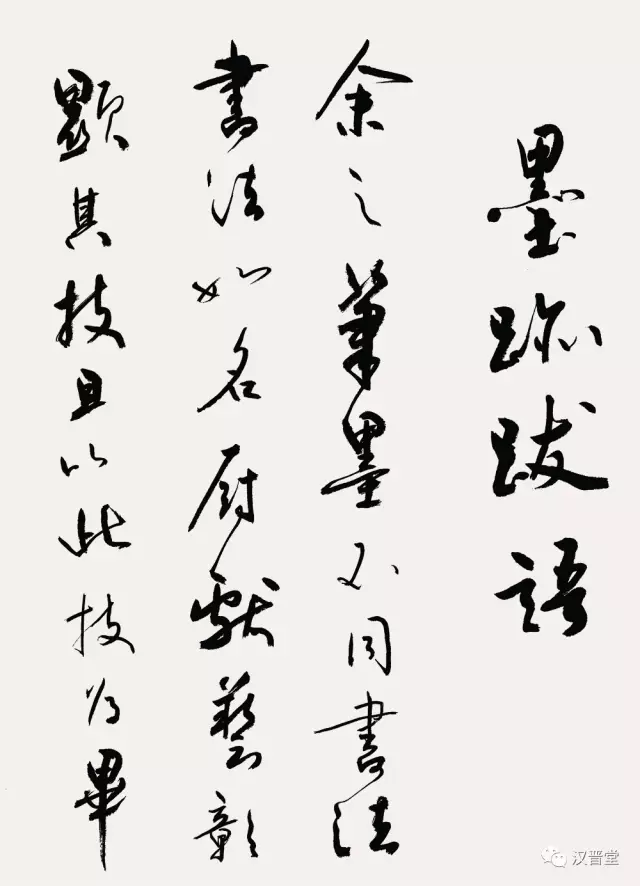 墨跡跋語
余之筆墨不同書法
書法如名廚獻藝彰
顯其技且以此技為畢
汉晋堂